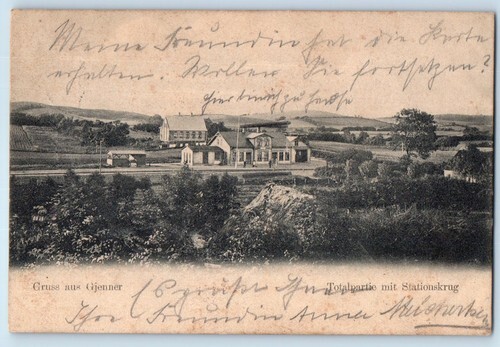 Meine Freundin hat die Karte
erhalten. Wollen Sie fortsetzen?
Gruss aus Gjenner
Totalpartie mit Stationskrug
Es grüßt Ihnen
Ihre Freundin Anna